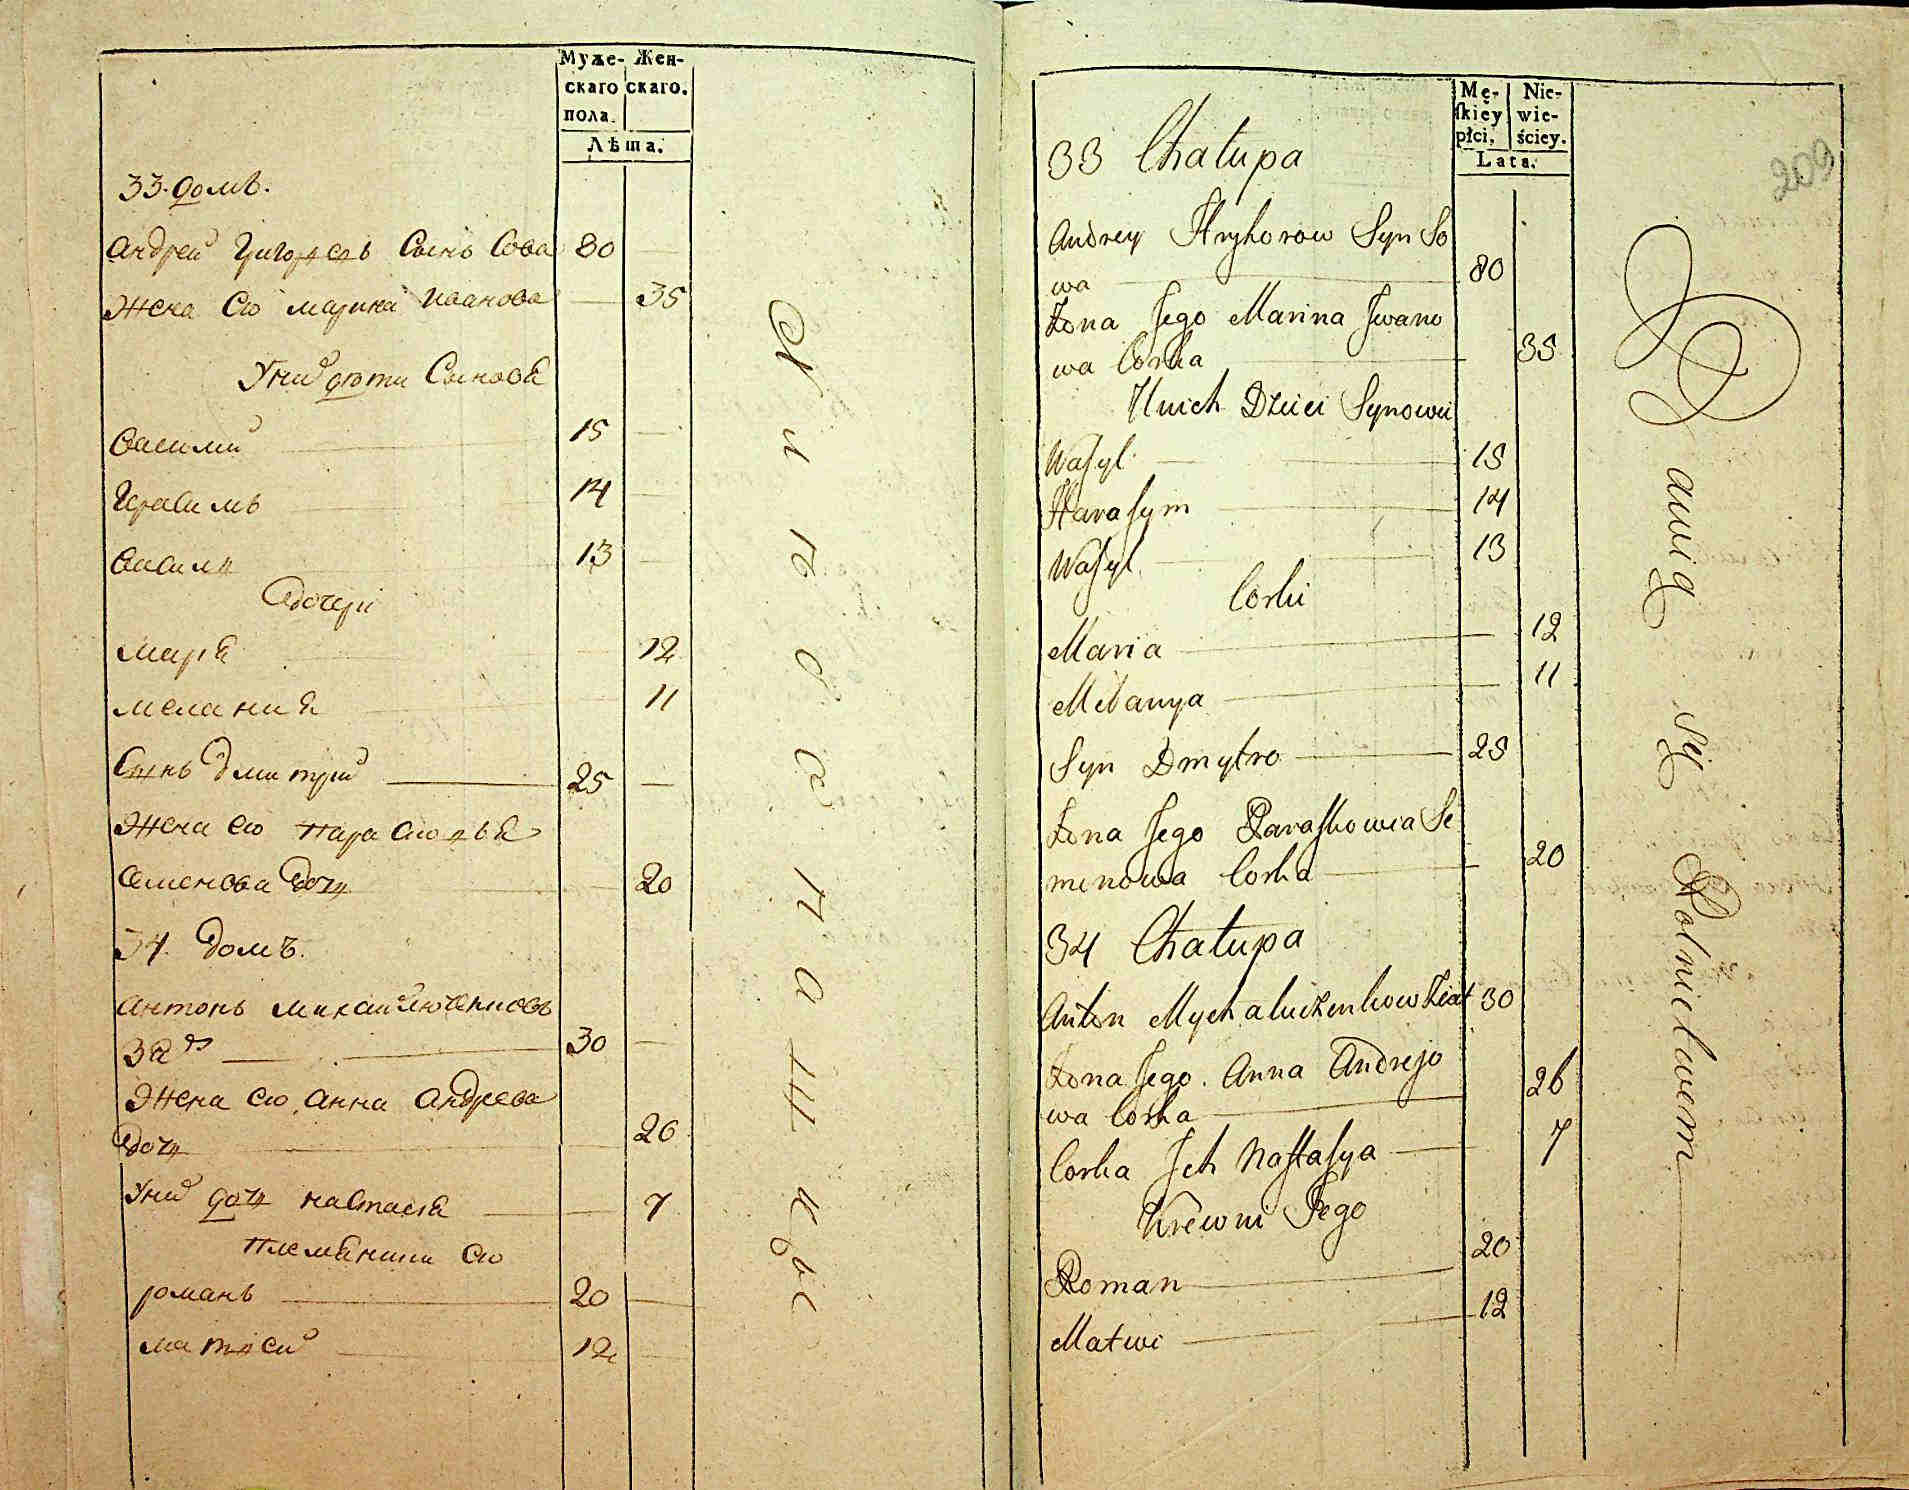 Муже- Жен-
скаго скаго.
пола.
Лѣта.
33. домъ.
Андрей Григорьевъ Сынъ Сова 80
Жена Его Марина Иванова 35
У них дѣти Сыновья
Василий 15
Герасимъ 14
Василь 13
дочери
Марья 12
Мелания 11
Сынъ Дмитрий 25
Жена его Парасковья
Семенова дочь 20
34. домъ.
Антонъ Михайлюченковъ
зять 30
Жена его Анна Андреева
дочь 26
У них дочь Настасья 7
Племянники его
Романъ 20
Матвей 12
Mę- Nie-
ſkiéy wie-
płci, ściey.
Lata.
209
33 Chałupa
Andrey Hryhorow Syn So
wa 80
Żona Jego Marina Jwano
wa Corka 35
U nich Dzieci Synowie
Waſyl 15
Haraſym 14
Waſyl 13
Corki
Maria 12
Melanya 11
Syn Dmytro 25
Żona Jego Paraſkowia Se
menowa Corka 20
34 Chałupa
Anton Mychaluczenkow Ziat 30
Żona Jego Anna Andrejo
wa Corka 26
Corka Jch Naſtaſya 7
Krewni Jego
Roman 20
Matwi 12
Bawią się Rolnictwem